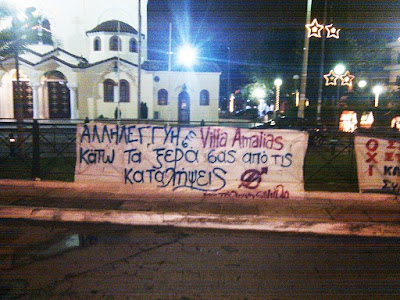 ΑΛΛΗΛΕΓΓΥΗ σε Villa Amalias
ΚάΤω Τα ξΕρά σας από τις
καταλήψεις
Ο
Χ
Ι